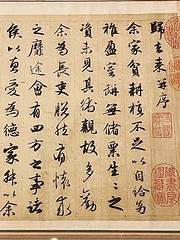 歸去來并序
余家貧耕植不足以自給幼
稚盈室缾無儲粟生生之
資未見其術親故多勸
余為長吏脫然有懷求
之靡途會有四方之事諸
侯以惠愛為德家叔以余